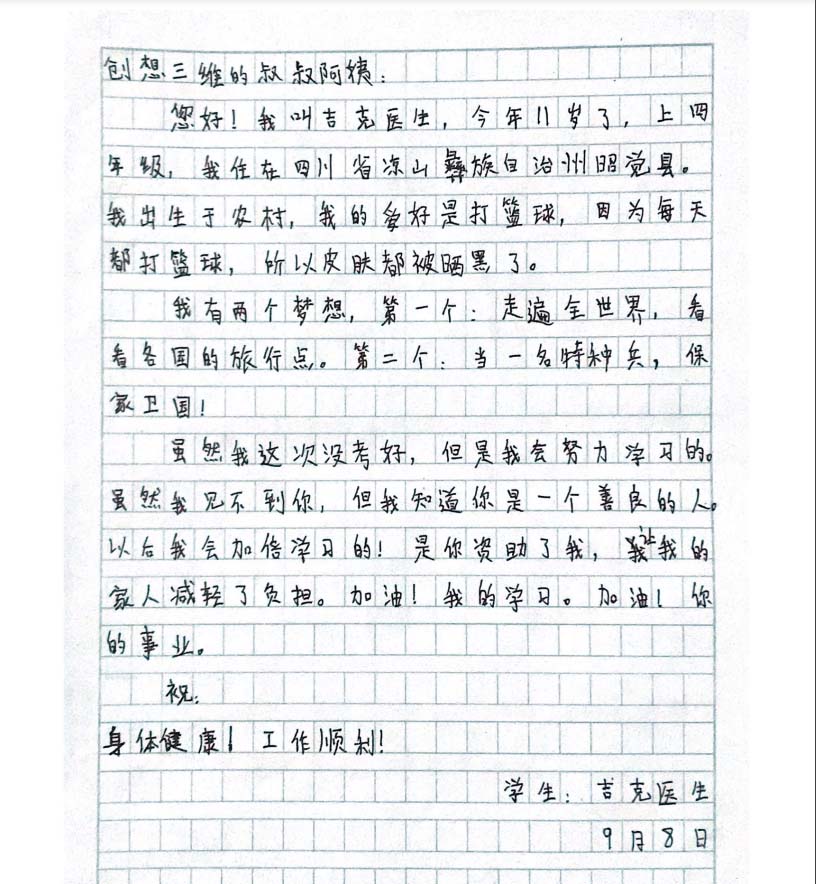 创想三维的叔叔阿姨：
您好！我叫吉克医生，今年11岁了，上四
年级，我住在四川省凉山彝族自治州昭觉县。
我出生于农村，我的爱好是打篮球，因为每天
都打篮球，所以皮肤都被晒黑了。
我有两个梦想，第一个：走遍全世界，看
看各国的旅行点。第二个：当一名特种兵，保
家卫国！
虽然我这次没考好，但是我会努力学习的。
虽然我见不到你，但我知道你是一个善良的人。
以后我会加倍学习的！是你资助了我，让我的
家人减轻了负担。加油！我的学习。加油！你
的事业。
祝：
身体健康！工作顺利！
学生：吉克医生
9月8日